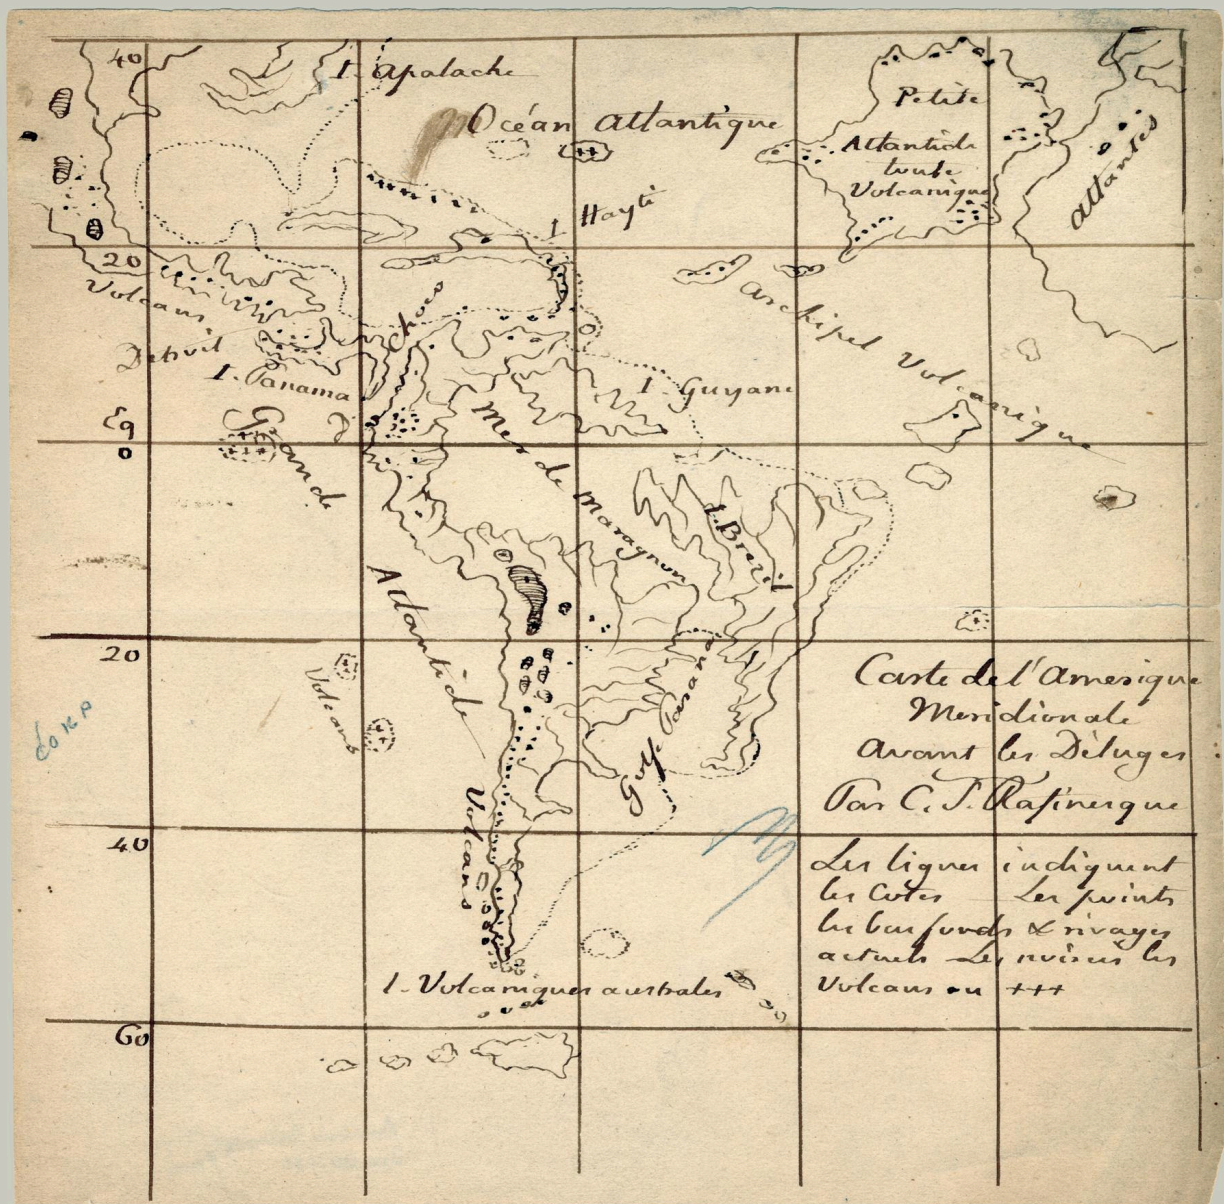 40
I. Apalache
Océan Atlantique
Petite
Atlantide
toute
Volcanique
Atlantes
I Hayti
20
Volcans
Détroit
Choco
Archipel Volcanique
I. Panama
I. Guyane
Eq
0
Grande
Atlantide
Mer de Maragnon
I. Brezil
20
Volcans
Golfe Parana
Carte de l'Amerique
Meridionale
avant les Déluges
Par C. S. Rafinesque
Volcans
40
Les lignes indiquent
les Cotes Les points
les bas fonds & rivages
actuels Les noircis les
Volcans ou +++
I. Volcaniques australes
60